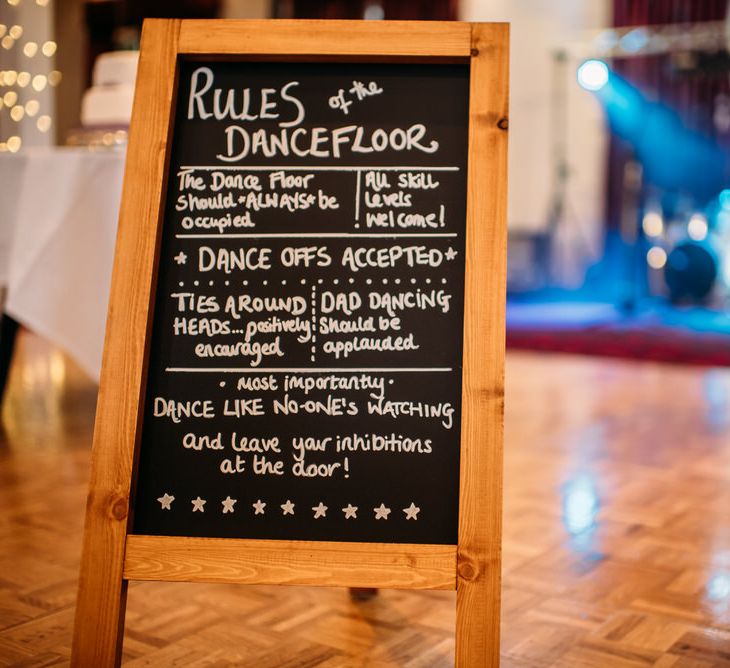 RULES of the
DANCEFLOOR
The Dance Floor
should *ALWAYS* be
occupied
All skill
levels
welcome!
* DANCE OFFS ACCEPTED *
TIES AROUND
HEADS... positively
encouraged
DAD DANCING
should be
applauded
• most importantly •
DANCE LIKE NO-ONE'S WATCHING
and leave your inhibitions
at the door!